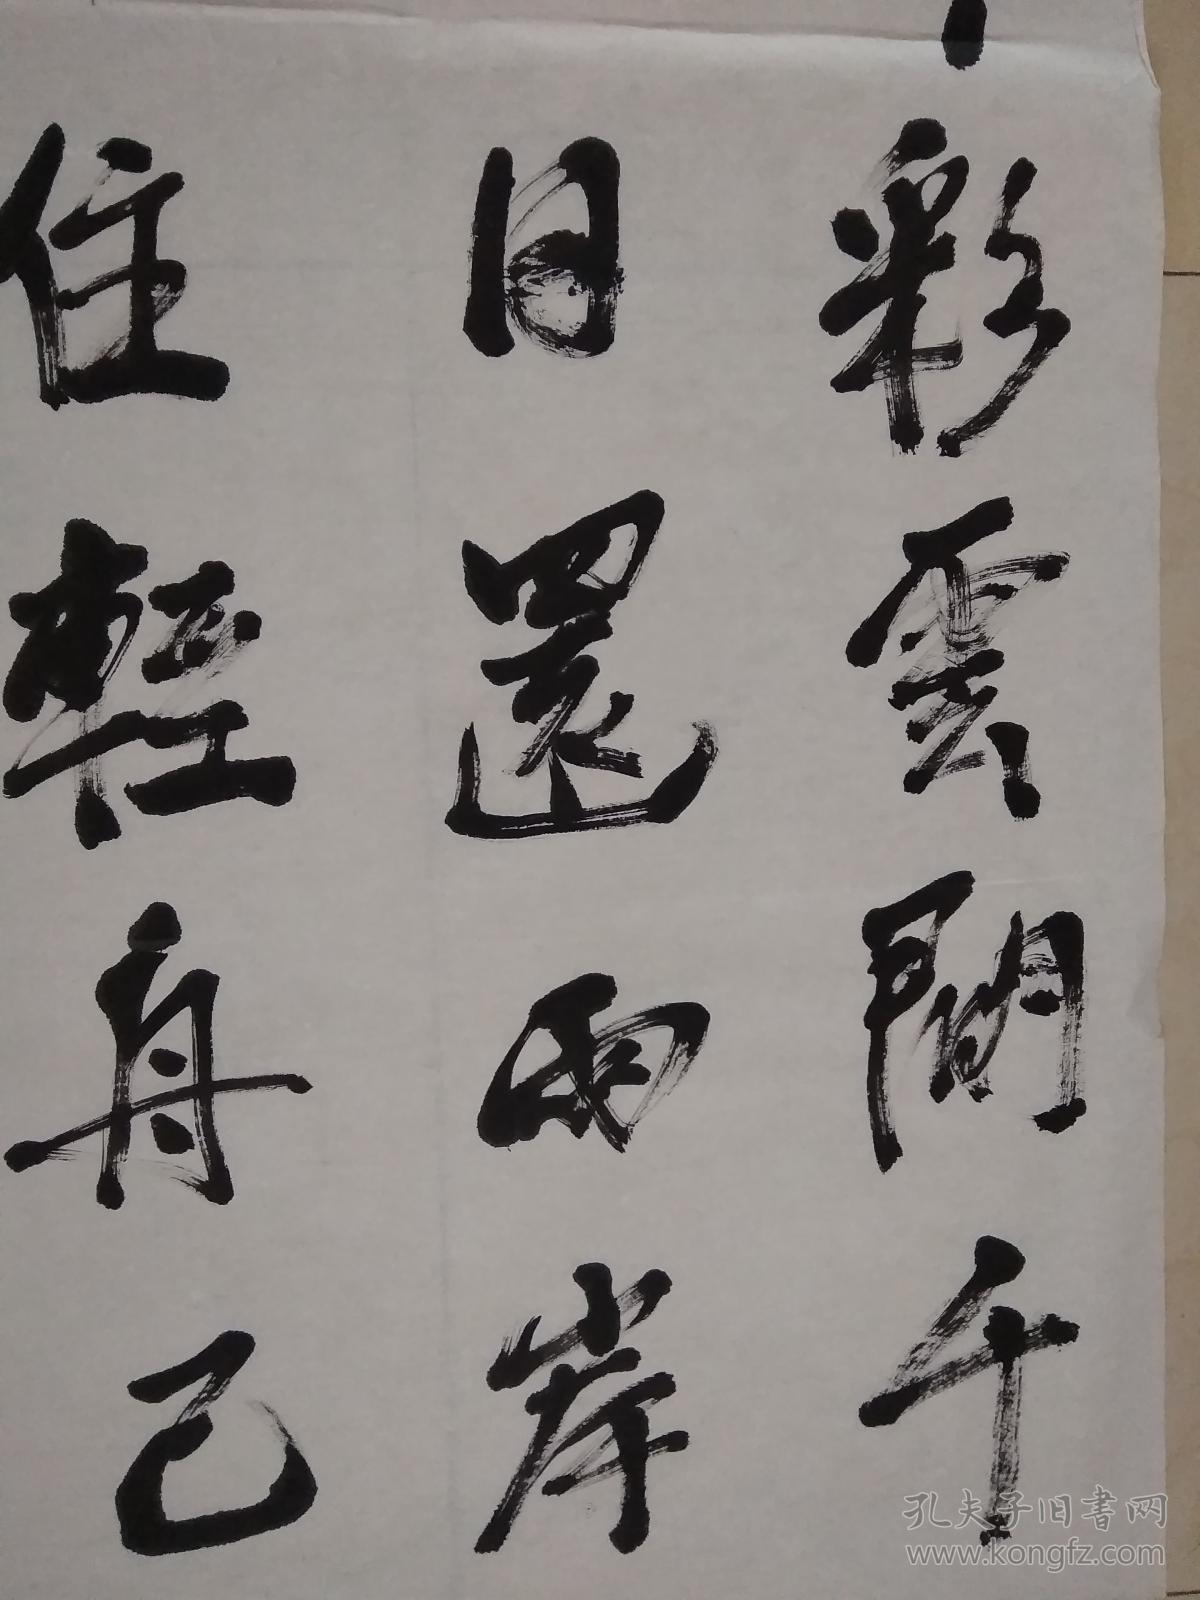 彩雲間千
日還兩岸
住輕舟已
孔夫子旧书网
www.kongfz.com